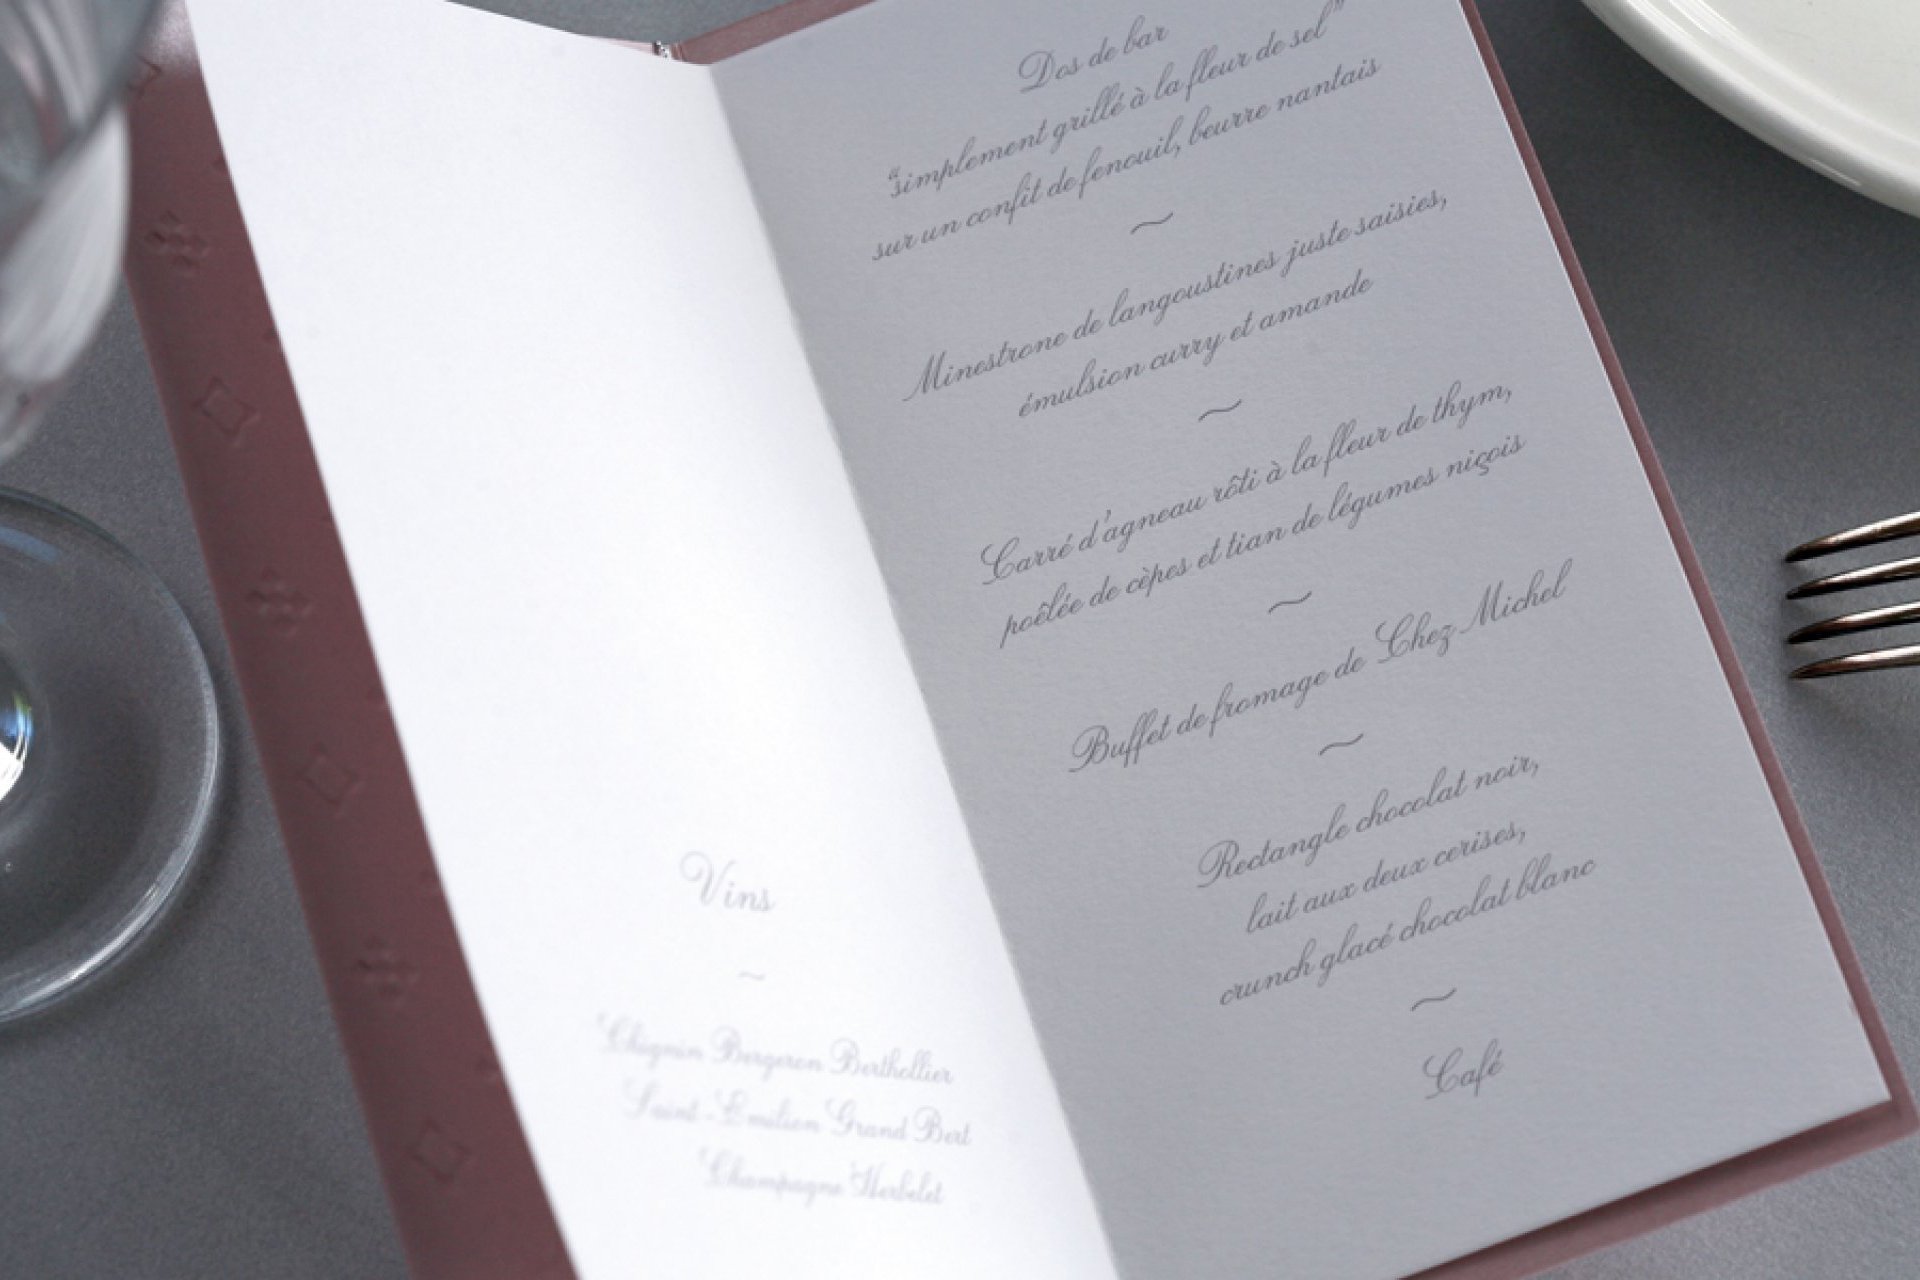 Vins
~
Chignin Bergeron Berthollier
Saint-Emilion Grand Bert
Champagne Herbelet
Dos de bar
"simplement grillé à la fleur de sel"
sur un confit de fenouil, beurre nantais
~
Minestrone de langoustines juste saisies,
émulsion curry et amande
~
Carré d'agneau rôti à la fleur de thym,
poêlée de cèpes et tian de légumes niçois
~
Buffet de fromage de Chez Michel
~
Rectangle chocolat noir,
lait aux deux cerises,
crunch glacé chocolat blanc
~
Café